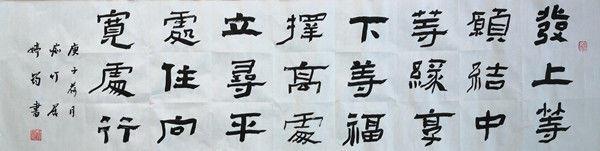 發上等
願結中
等緣享
下等福
擇高處
立尋平
處住向
寬處行
庚子荷月
竹居
書